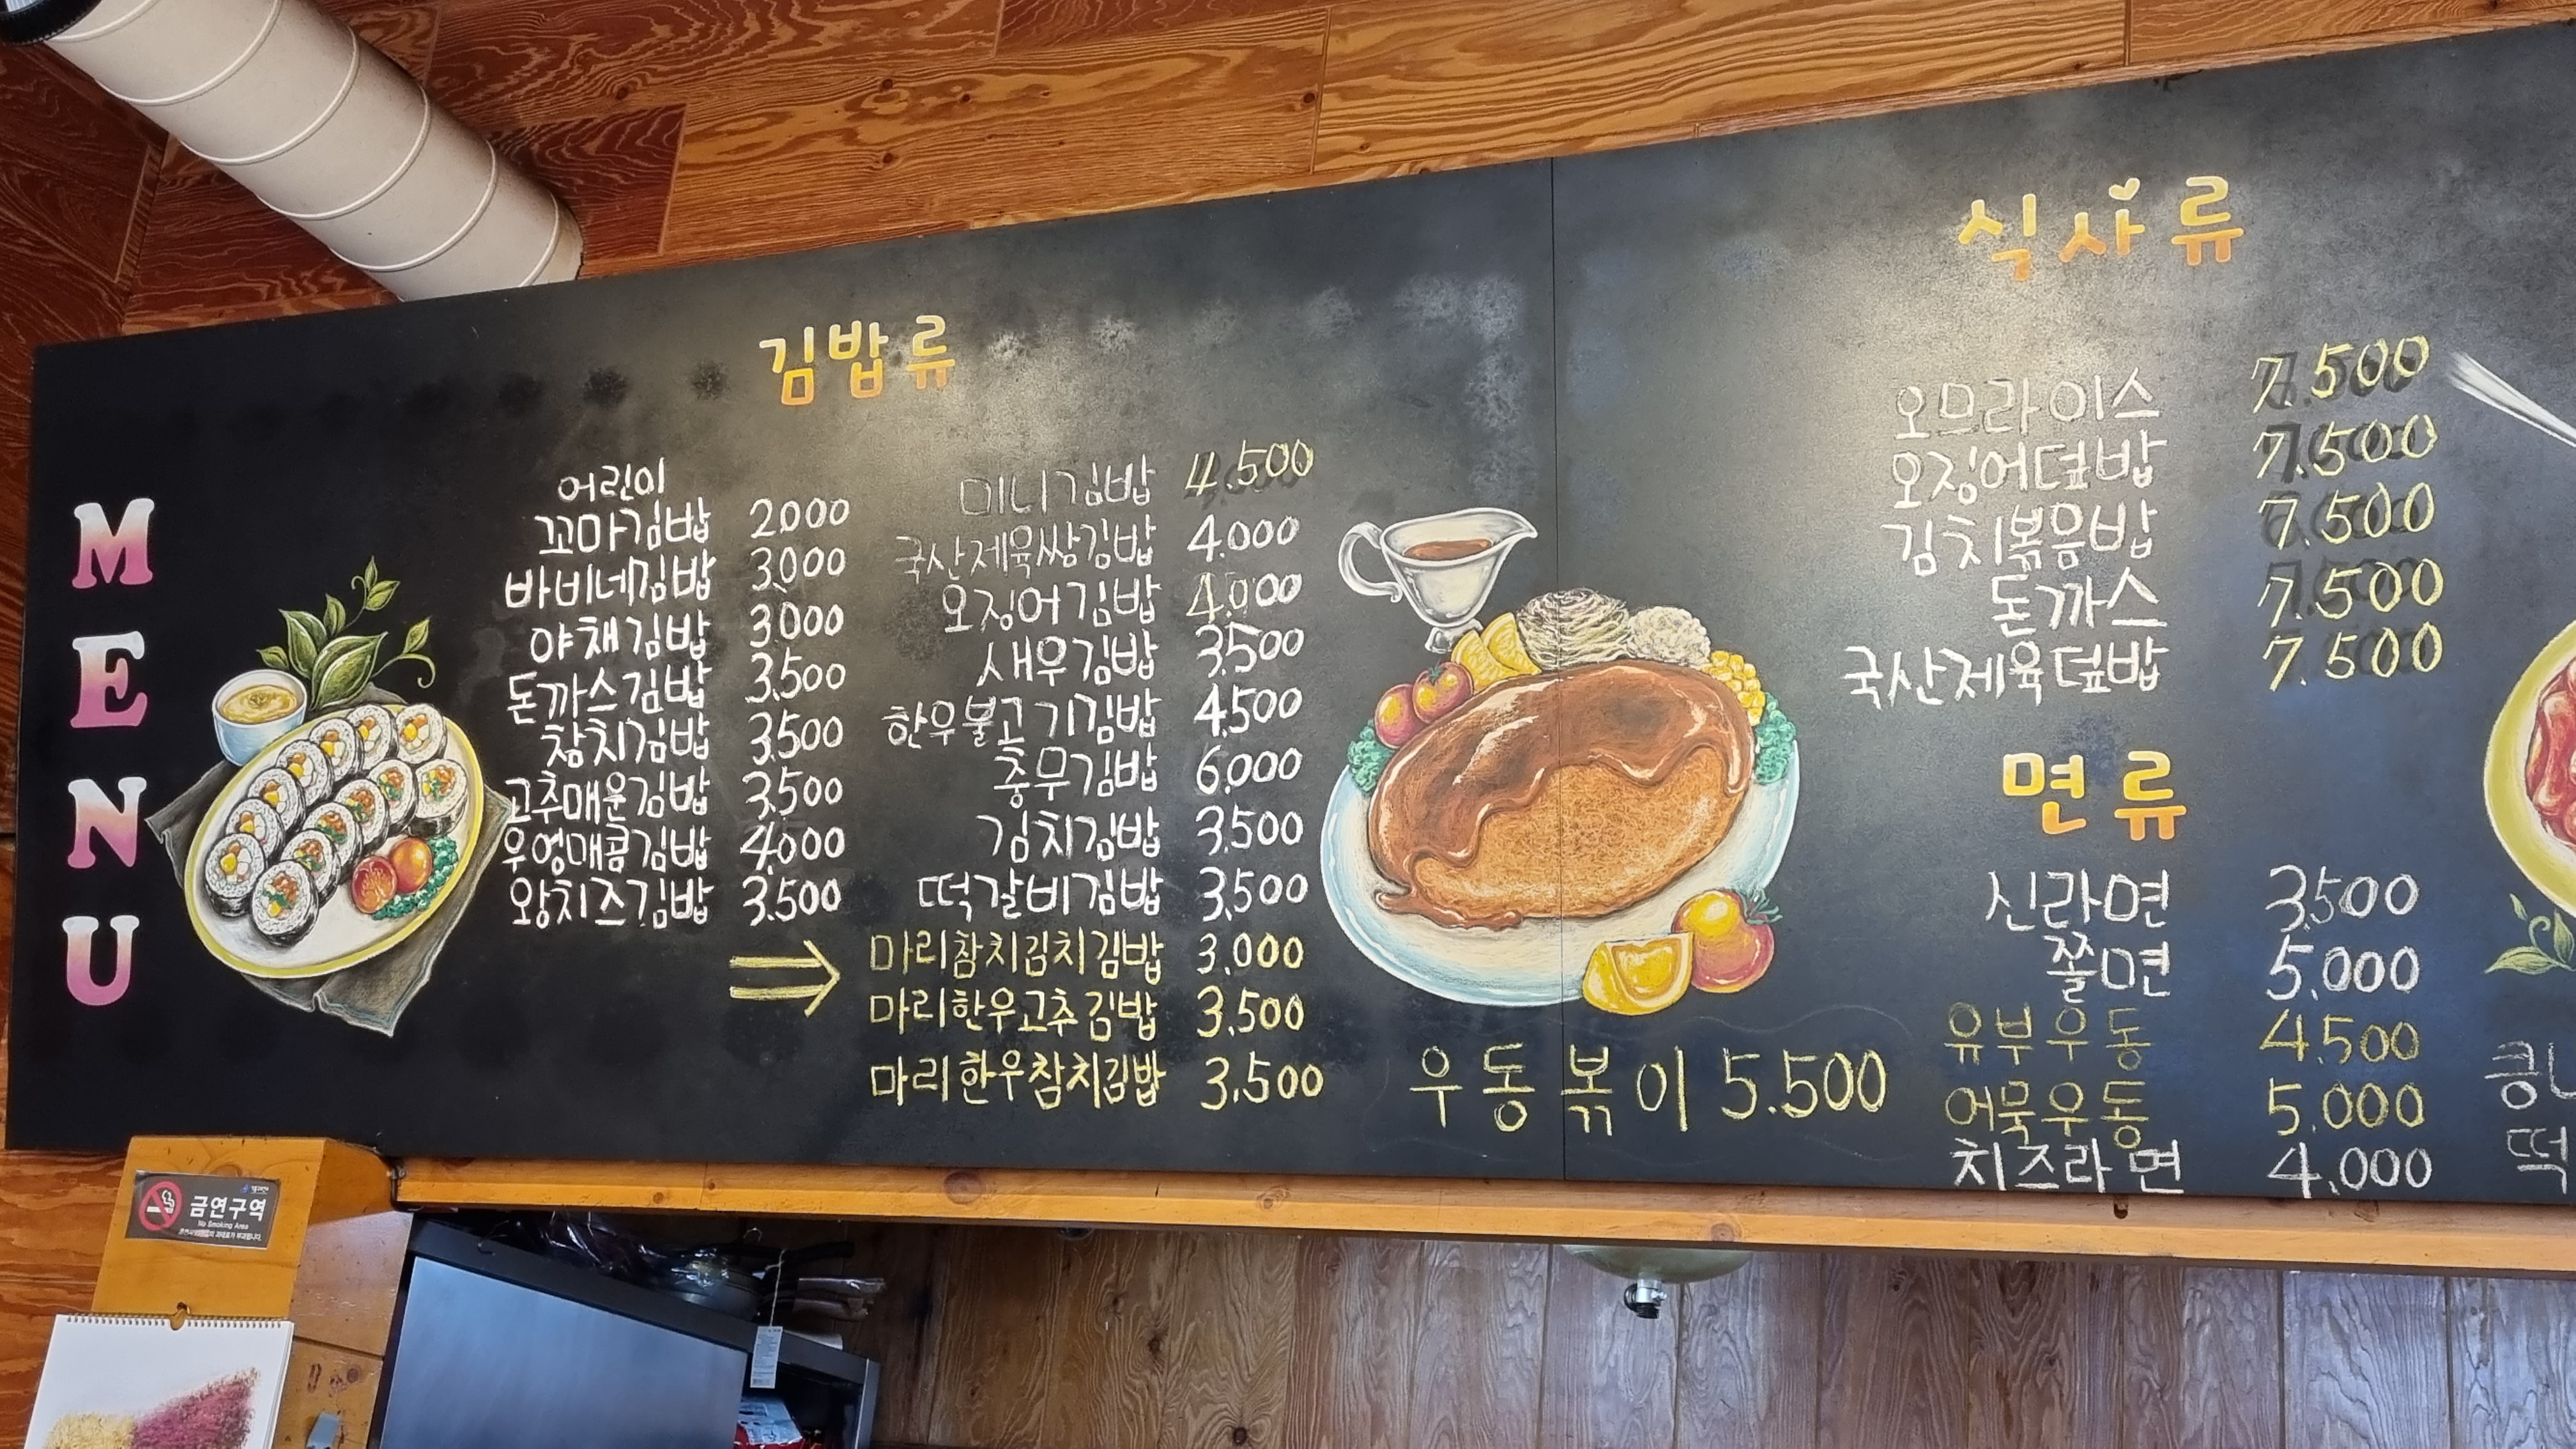 MENU
김밥류
어린이
꼬마김밥 2.000
바비네김밥 3.000
야채김밥 3.000
돈까스김밥 3.500
참치김밥 3.500
고추매운김밥 3.500
우엉매콤김밥 4.000
왕치즈김밥 3.500
미니김밥 4.500
국산제육쌈김밥 4.000
오징어김밥 4.000
새우김밥 3.500
한우불고기김밥 4.500
충무김밥 6.000
김치김밥 3.500
떡갈비김밥 3.500
마리참치김치김밥 3.000
마리한우고추김밥 3.500
마리한우참치김밥 3.500
우동볶이 5.500
식사류
오므라이스 7.500
오징어덮밥 7.500
김치볶음밥 7.500
돈까스 7.500
국산제육덮밥 7.500
면류
신라면 3.500
쫄면 5.000
유부우동 4.500
어묵우동 5.000
치즈라면 4.000
떡
금연구역
No Smoking Area